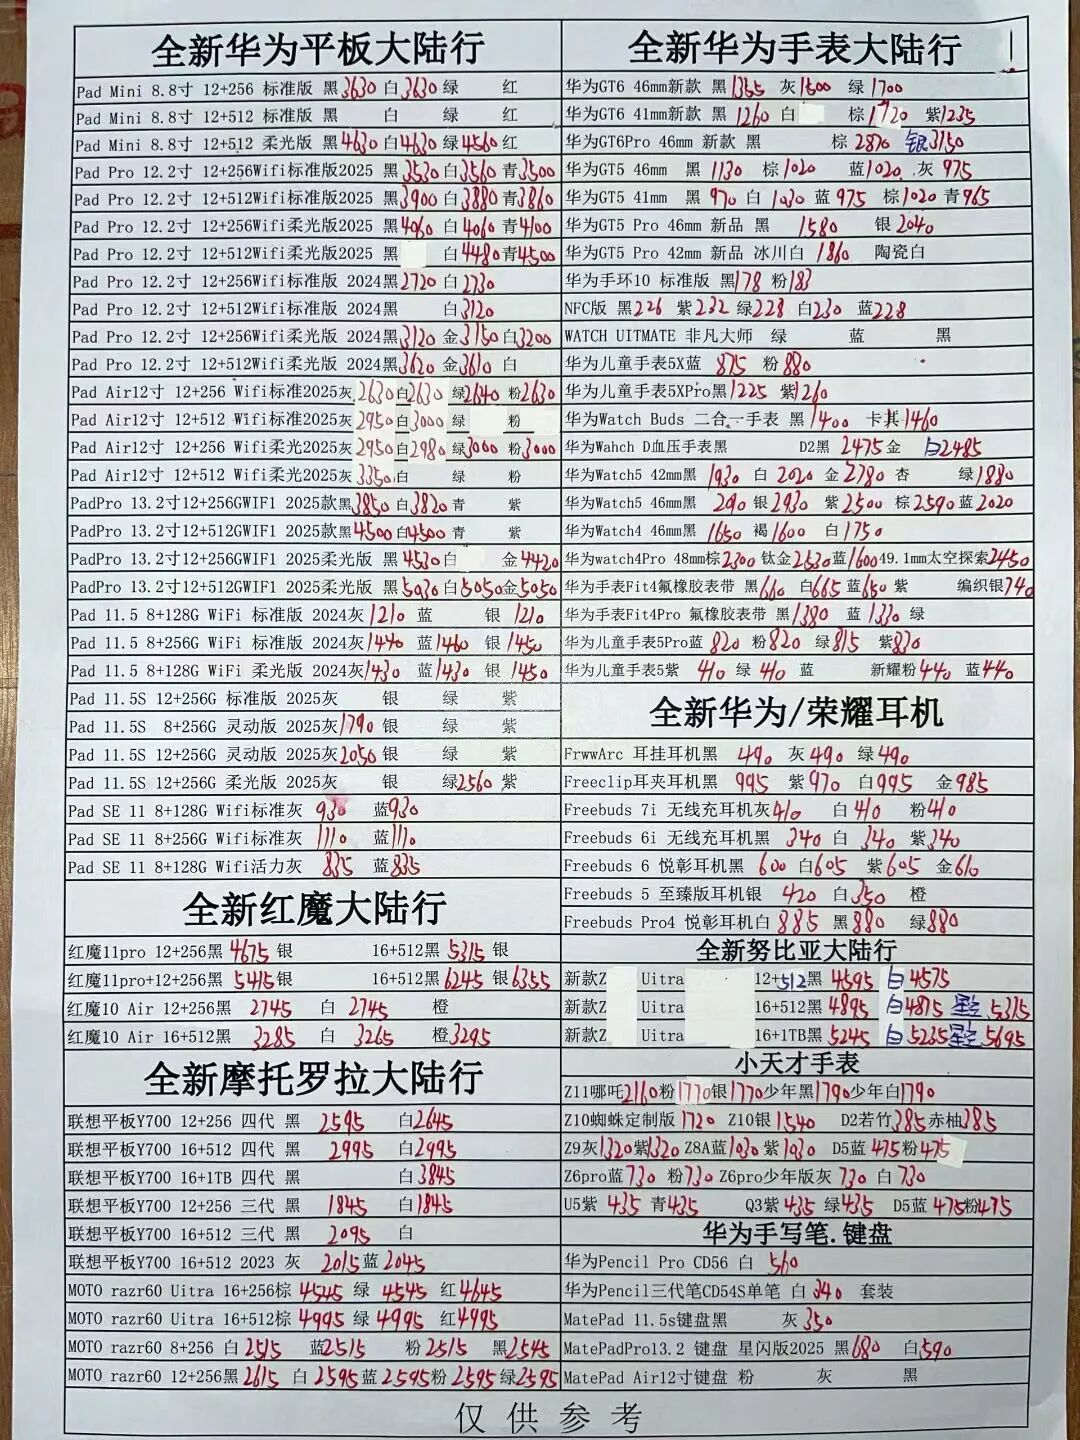 全新华为平板大陆行
Pad Mini 8.8寸 12+256 标准版 黑3630 白3630 绿 红
Pad Mini 8.8寸 12+512 标准版 黑 白 绿 红
Pad Mini 8.8寸 12+512 柔光版 黑4630 白4630 绿4560 红
Pad Pro 12.2寸 12+256Wifi标准版2025 黑3530 白3560 青3500
Pad Pro 12.2寸 12+512Wifi标准版2025 黑3900 白3880 青3860
Pad Pro 12.2寸 12+256Wifi柔光版2025 黑4060 白4060 青4100
Pad Pro 12.2寸 12+512Wifi柔光版2025 黑 白4480 青4500
Pad Pro 12.2寸 12+256Wifi标准版 2024黑2720 白2730
Pad Pro 12.2寸 12+512Wifi标准版 2024黑 白3120
Pad Pro 12.2寸 12+256Wifi柔光版 2024黑3120 金3150 白3200
Pad Pro 12.2寸 12+512Wifi柔光版 2024黑3620 金3610 白
Pad Air12寸 12+256 Wifi标准2025灰2630 白2630 绿2640 粉2630
Pad Air12寸 12+512 Wifi标准2025灰2950 白3000 绿 粉
Pad Air12寸 12+256 Wifi柔光2025灰2950 白2980 绿3000 粉3000
Pad Air12寸 12+512 Wifi柔光2025灰3350 白 绿 粉
PadPro 13.2寸12+256GWIF1 2025款黑3850 白3820 青 紫
PadPro 13.2寸12+512GWIF1 2025款黑4500 白4500 青 紫
PadPro 13.2寸12+256GWIF1 2025柔光版 黑4530 白 金4420
PadPro 13.2寸12+512GWIF1 2025柔光版 黑5030 白5050 金5050
Pad 11.5 8+128G WiFi 标准版 2024灰1210 蓝 银 1210
Pad 11.5 8+256G WiFi 标准版 2024灰1440 蓝1460 银 1450
Pad 11.5 8+128G WiFi 柔光版 2024灰1430 蓝1430 银 1450
Pad 11.5S 12+256G 标准版 2025灰 银 绿 紫
Pad 11.5S 8+256G 灵动版 2025灰1790 银 绿 紫
Pad 11.5S 12+256G 灵动版 2025灰2050 银 绿 紫
Pad 11.5S 12+256G 柔光版 2025灰 银 绿2560 紫
Pad SE 11 8+128G Wifi标准灰 930 蓝930
Pad SE 11 8+256G Wifi标准灰 1110 蓝1110
Pad SE 11 8+128G Wifi活力灰 835 蓝835
全新红魔大陆行
红魔11pro 12+256黑 4675 银 16+512黑 5315 银
红魔11pro+12+256黑 5415 银 16+512黑6245 银6355
红魔10 Air 12+256黑 2745 白 2745 橙
红魔10 Air 16+512黑 3285 白 3265 橙3295
全新摩托罗拉大陆行
联想平板Y700 12+256 四代 黑 2595 白2645
联想平板Y700 16+512 四代 黑 2995 白2995
联想平板Y700 16+1TB 四代 黑 白3845
联想平板Y700 12+256 三代 黑 1845 白1845
联想平板Y700 16+512 三代 黑 2095 白
联想平板Y700 16+512 2023 灰 2015 蓝 2045
MOTO razr60 Uitra 16+256棕 4545 绿 4545 红4645
MOTO razr60 Uitra 16+512棕 4995 绿 4995 红4995
MOTO razr60 8+256 白 2515 蓝2515 粉 2515 黑2545
MOTO razr60 12+256黑 2615 白 2595 蓝 2595 粉 2595 绿2595
全新华为手表大陆行
华为GT6 46mm新款 黑1355 灰1600 绿 1700
华为GT6 41mm新款 黑1260 白 棕1720 紫1235
华为GT6Pro 46mm 新款 黑 棕 2870 银3150
华为GT5 46mm 黑 1130 棕1020 蓝1020 灰 975
华为GT5 41mm 黑 970 白 1030 蓝 975 棕1020 青965
华为GT5 Pro 46mm 新品 黑 1580 银 2040
华为GT5 Pro 42mm 新品 冰川白 1860 陶瓷白
华为手环10 标准版 黑178 粉183
NFC版 黑226 紫232 绿228 白230 蓝228
WATCH UITMATE 非凡大师 绿 蓝 黑
华为儿童手表5X蓝 875 粉 880
华为儿童手表5XPro黑1225 紫1260
华为Watch Buds 二合一手表 黑 1400 卡其1460
华为Wahch D血压手表黑 D2黑 2475 金 白2485
华为Watch5 42mm黑 1930 白 2020 金2780 杏 绿1880
华为Watch5 46mm黑 2090 银2930 紫2500 棕2590 蓝2020
华为Watch4 46mm黑 1650 褐1600 白1750
华为watch4Pro 48mm棕2300 钛金2530 蓝1600 49.1mm太空探索2450
华为手表Fit4氟橡胶表带 黑660 白665 蓝650 紫 编织银740
华为手表Fit4Pro 氟橡胶表带 黑1380 蓝1330 绿
华为儿童手表5Pro蓝 820 粉820 绿815 紫830
华为儿童手表5紫 410 绿 410 蓝 新耀粉440 蓝440
全新华为/荣耀耳机
FrwwArc 耳挂耳机黑 490 灰490 绿490
Freeclip耳夹耳机黑 995 紫970 白995 金985
Freebuds 7i 无线充耳机灰410 白410 粉410
Freebuds 6i 无线充耳机黑 340 白 340 紫340
Freebuds 6 悦彰耳机黑 600 白605 紫605 金610
Freebuds 5 至臻版耳机银 420 白350 橙
Freebuds Pro4 悦彰耳机白885 黑880 绿880
全新努比亚大陆行
新款Z Uitra 12+512黑 4595 白4575
新款Z Uitra 16+512黑 4895 白4875 星空5315
新款Z Uitra 16+1TB黑 5245 白5235 星空5695
小天才手表
Z11哪吒2160粉1770银1770少年黑1790少年白1790
Z10蜘蛛定制版 1720 Z10银1540 D2若竹385赤柚385
Z9灰1320紫1320 Z8A蓝1030 紫1030 D5蓝 475粉475
Z6pro蓝730 粉730 Z6pro少年版灰 730 白 730
U5紫 435 青435 Q3紫 435 绿435 D5蓝 475粉475
华为手写笔.键盘
华为Pencil Pro CD56 白 560
华为Pencil三代笔CD54S单笔 白 340 套装
MatePad 11.5s键盘黑 灰 350
MatePadPro13.2 键盘 星闪版2025 黑680 白590
MatePad Air12寸键盘 粉 灰 黑
仅供参考